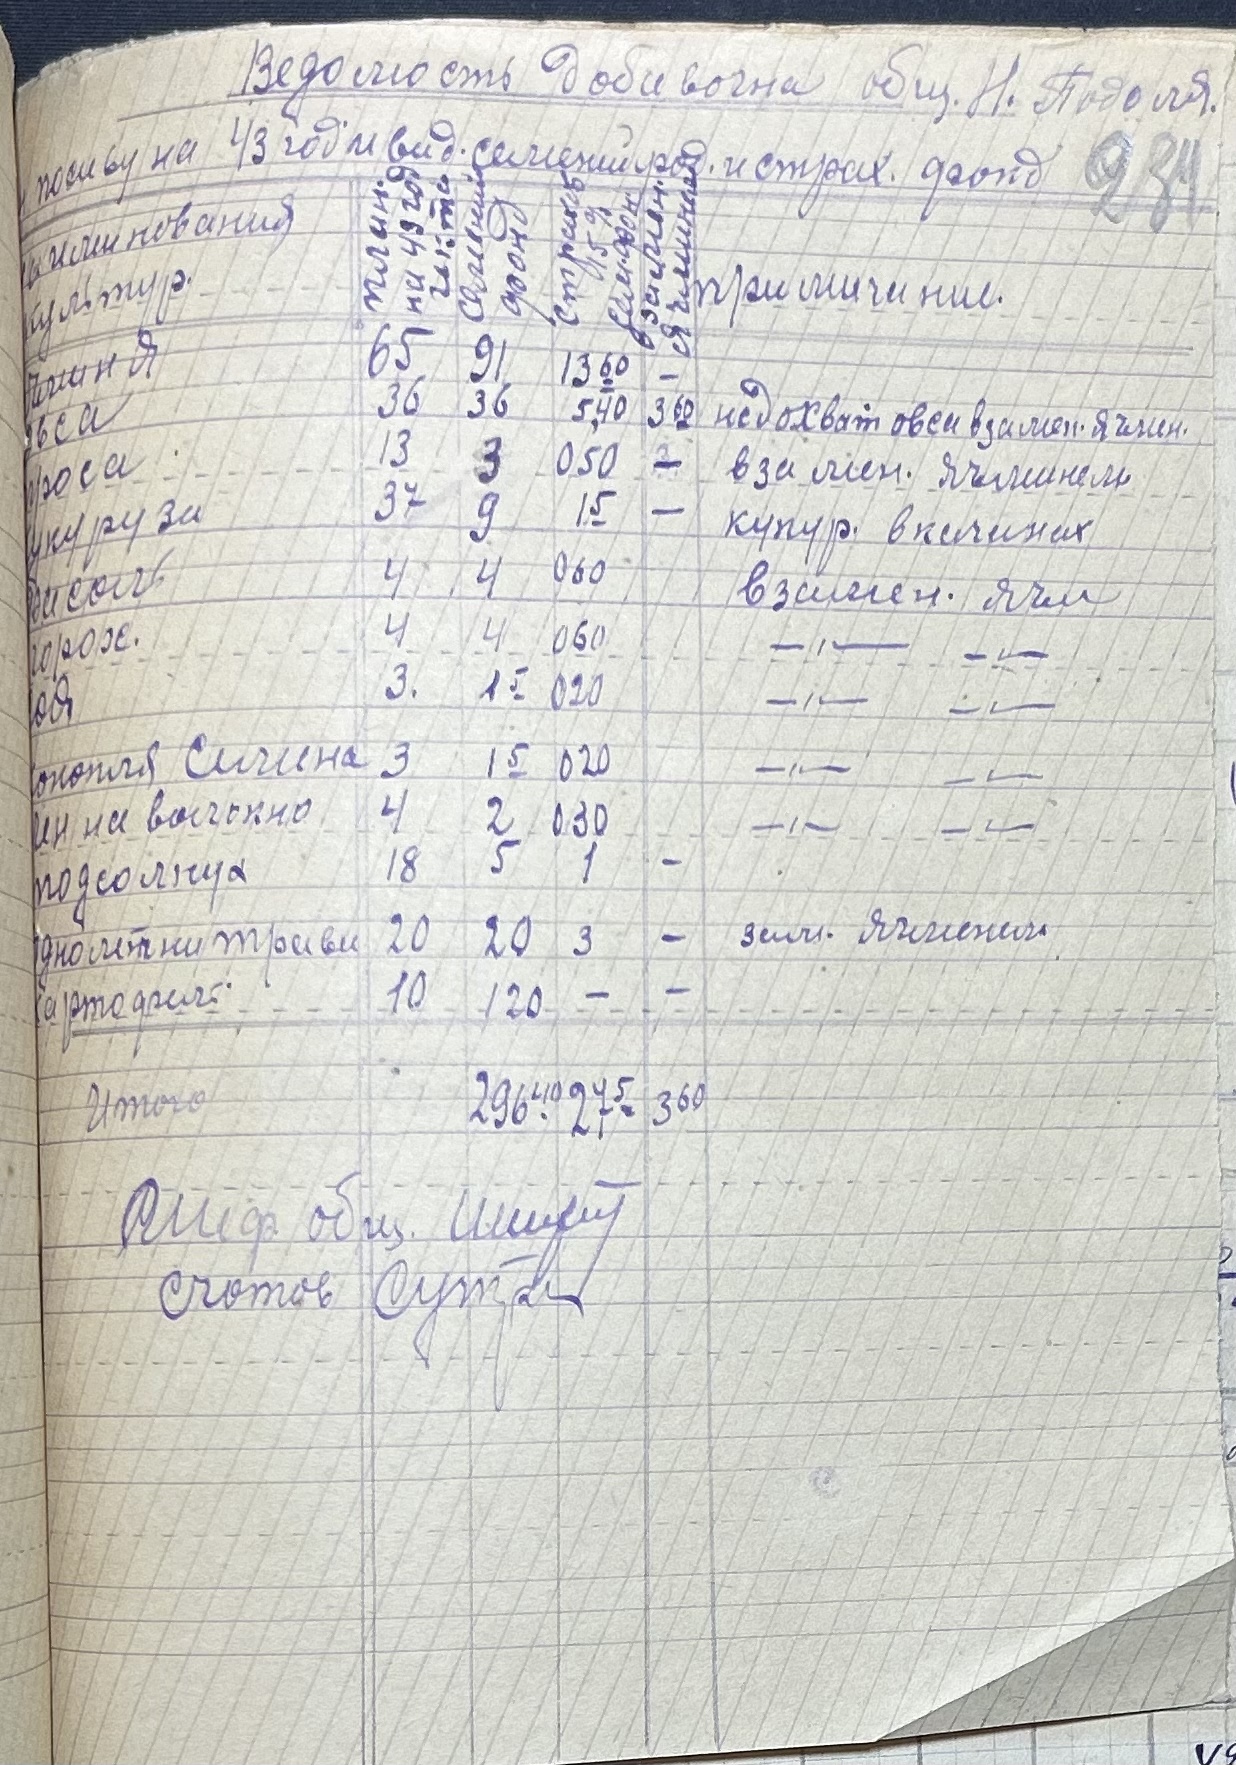 Ведомость Добавочна общ. Н. Подоля.
посиву на 43 год и вид. семений фод. и страх. фонд 231
именования культур. план. на 43 год семений фонд страхов 15% сем. фон взамен. Ячминем примичиние.
чминя 65 91 13 60 –
вса 36 36 5,40 3 60 недохват овса взамен. ячмен.
роса 13 3 050 – взамен. Ячминем
укурузи 37 9 15 – кукур. в качинах
4 4 060 взамен. ячм
горох. 4 4 060 –"– –"–
3. 1 5 020 –"– –"–
онопля Симина 3 1 5 020 –"– –"–
ен на волокно 4 2 030 –"– –"–
подсолнух 18 5 1 –
днолетни трави 20 20 3 – зам. Ячменем
артофиль 10 120 – –
Итого 296 40 27 45 3 60
Шеф общ.
счотов